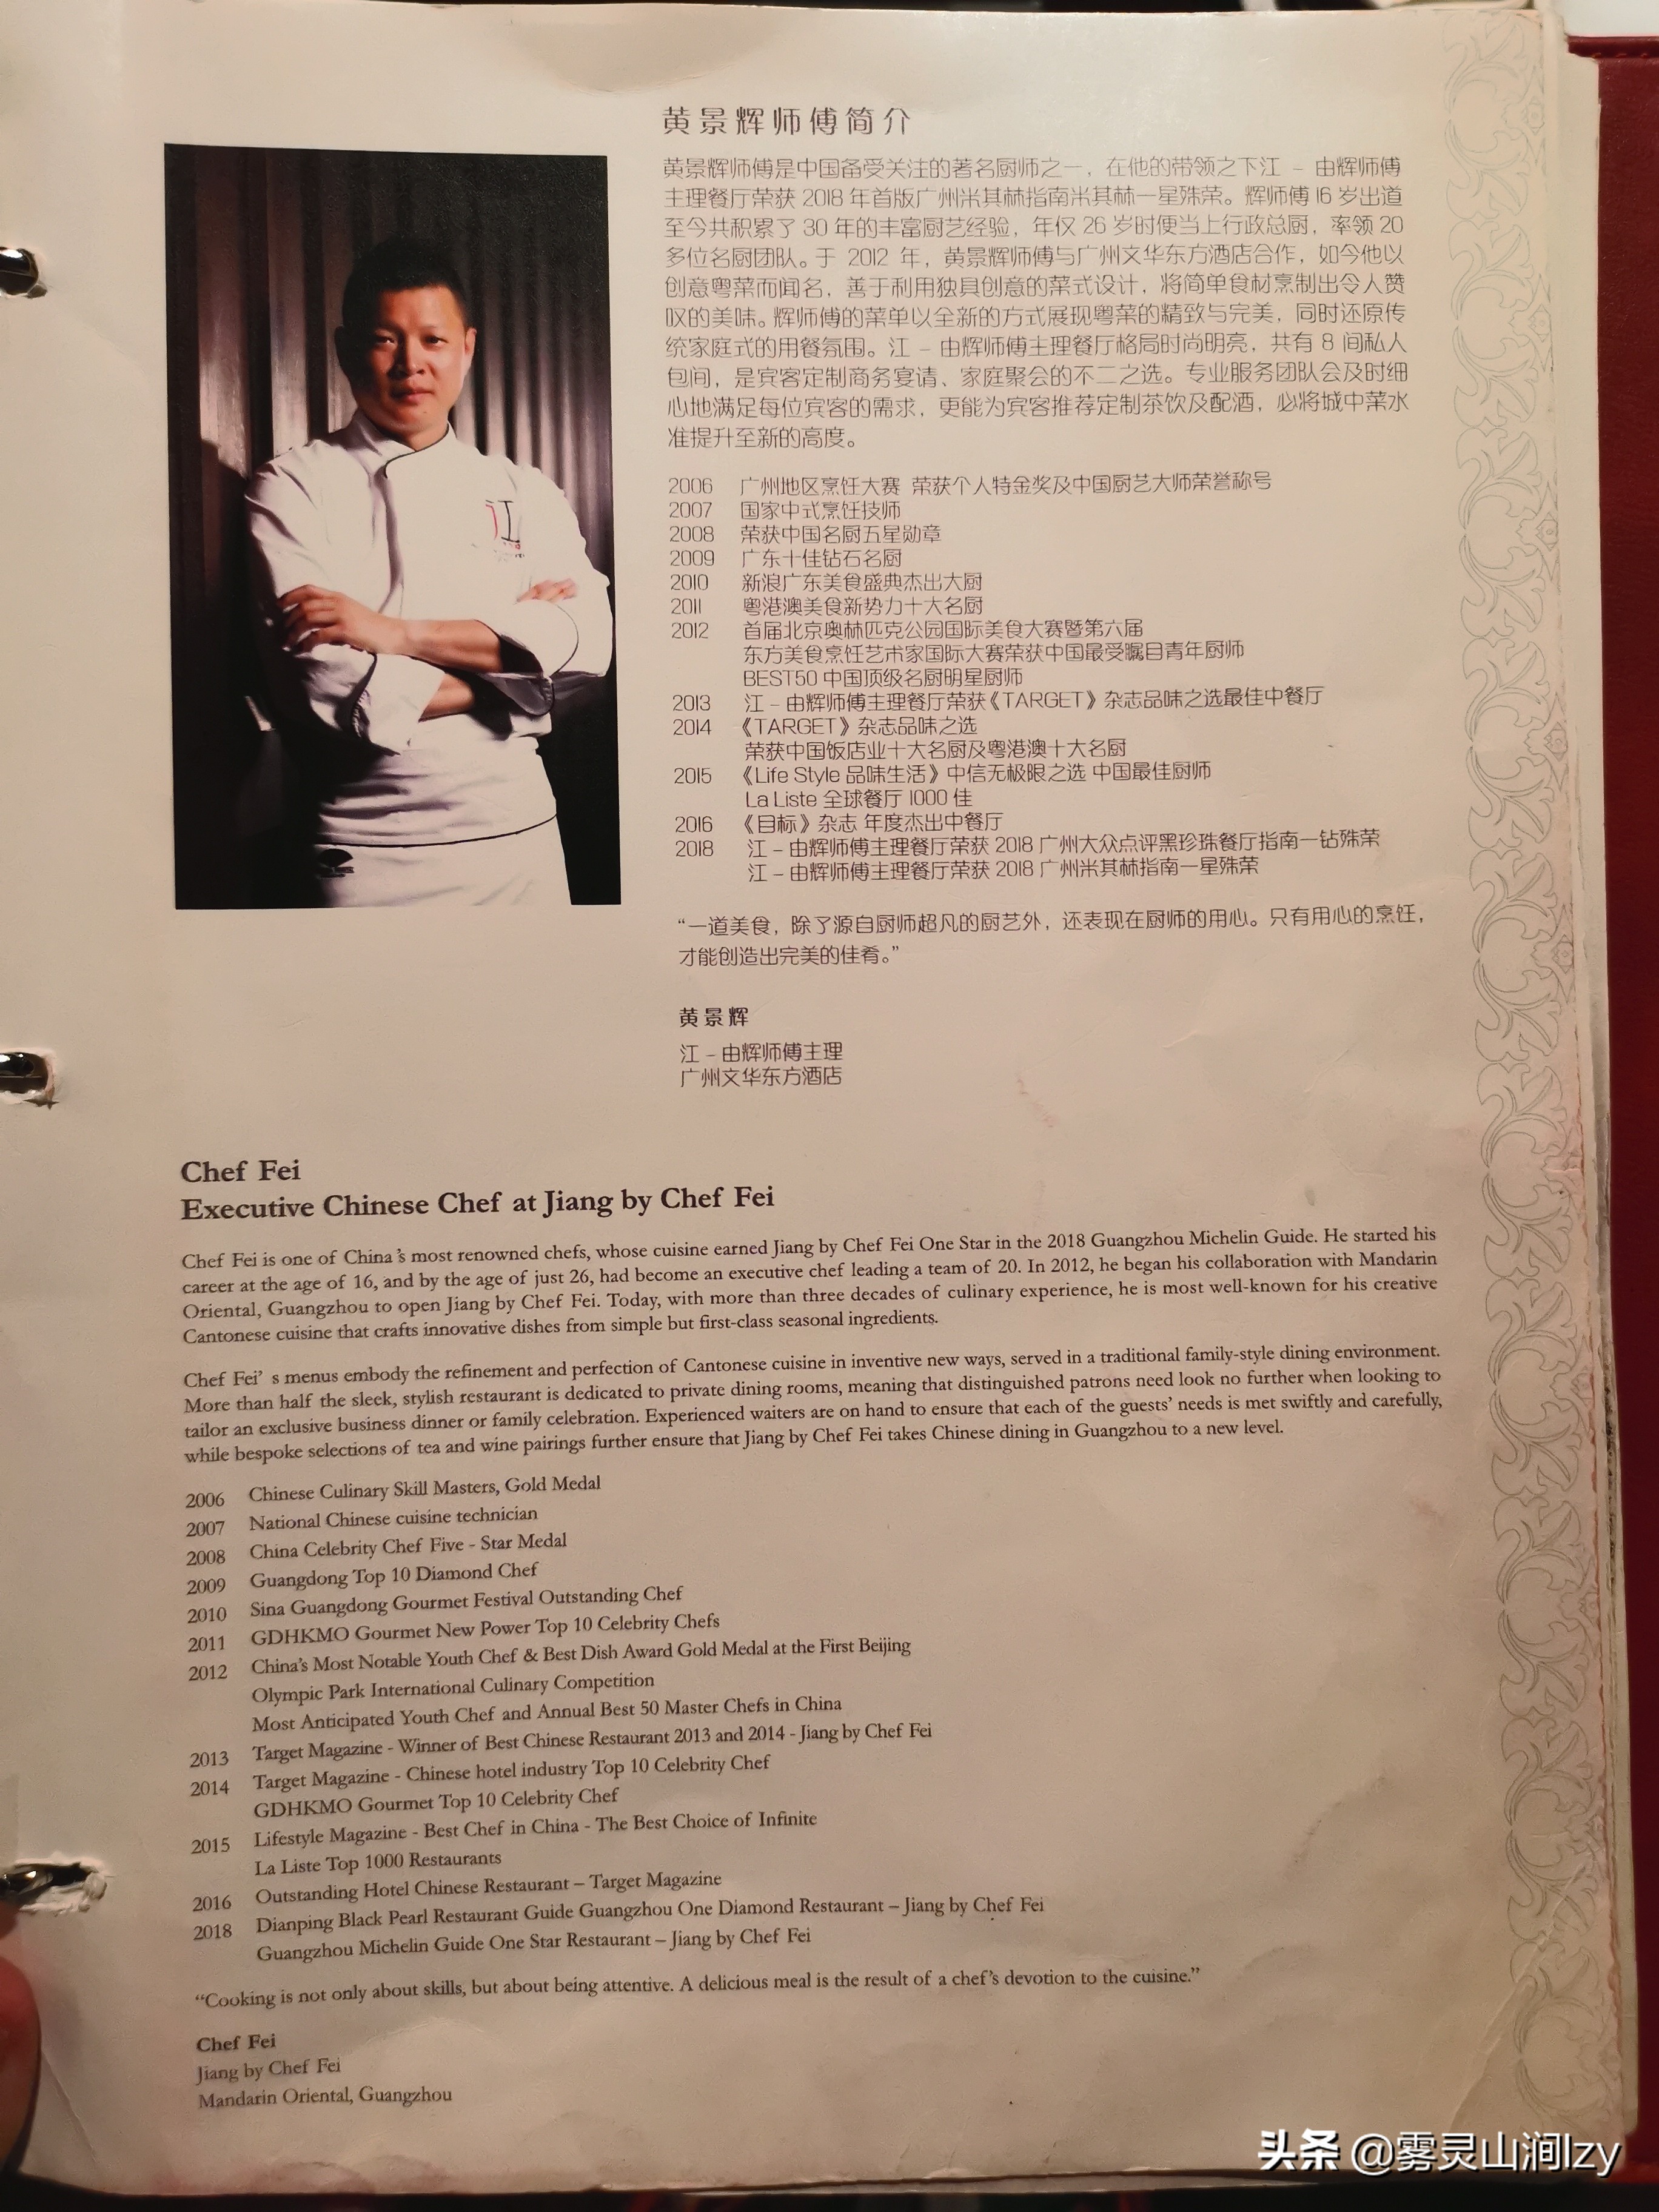 黄景辉师傅简介
黄景辉师傅是中国备受关注的著名厨师之一，在他的带领之下江 – 由辉师傅
主理餐厅荣获 2018 年首版广州米其林指南米其林一星殊荣。辉师傅 16 岁出道
至今共积累了 30 年的丰富厨艺经验，年仅 26 岁时便当上行政总厨，率领 20
多位名厨团队。于 2012 年，黄景辉师傅与广州文华东方酒店合作，如今他以
创意粤菜而闻名，善于利用独具创意的菜式设计，将简单食材烹制出令人赞
叹的美味。辉师傅的菜单以全新的方式展现粤菜的精致与完美，同时还原传
统家庭式的用餐氛围。江 – 由辉师傅主理餐厅格局时尚明亮，共有 8 间私人
包间，是宾客定制商务宴请、家庭聚会的不二之选。专业服务团队会及时细
心地满足每位宾客的需求，更能为宾客推荐定制茶饮及配酒，必将城中菜水
准提升至新的高度。
2006 广州地区烹饪大赛 荣获个人特金奖及中国厨艺大师荣誉称号
2007 国家中式烹饪技师
2008 荣获中国名厨五星勋章
2009 广东十佳钻石名厨
2010 新浪广东美食盛典杰出大厨
2011 粤港澳美食新势力十大名厨
2012 首届北京奥林匹克公园国际美食大赛暨第六届
东方美食烹饪艺术家国际大赛荣获中国最受瞩目青年厨师
BEST50 中国顶级名厨明星厨师
2013 江 – 由辉师傅主理餐厅荣获《TARGET》杂志品味之选最佳中餐厅
2014 《TARGET》杂志品味之选
荣获中国饭店业十大名厨及粤港澳十大名厨
2015 《Life Style 品味生活》中信无极限之选 中国最佳厨师
La Liste 全球餐厅 1000 佳
2016 《目标》杂志 年度杰出中餐厅
2018 江 – 由辉师傅主理餐厅荣获 2018 广州大众点评黑珍珠餐厅指南一钻殊荣
江 – 由辉师傅主理餐厅荣获 2018 广州米其林指南一星殊荣
“一道美食，除了源自厨师超凡的厨艺外，还表现在厨师的用心。只有用心的烹饪，
才能创造出完美的佳肴。”
黄景辉
江 – 由辉师傅主理
广州文华东方酒店
Chef Fei
Executive Chinese Chef at Jiang by Chef Fei
Chef Fei is one of China's most renowned chefs, whose cuisine earned Jiang by Chef Fei One Star in the 2018 Guangzhou Michelin Guide. He started his
career at the age of 16, and by the age of just 26, had become an executive chef leading a team of 20. In 2012, he began his collaboration with Mandarin
Oriental, Guangzhou to open Jiang by Chef Fei. Today, with more than three decades of culinary experience, he is most well-known for his creative
Cantonese cuisine that crafts innovative dishes from simple but first-class seasonal ingredients.
Chef Fei' s menus embody the refinement and perfection of Cantonese cuisine in inventive new ways, served in a traditional family-style dining environment.
More than half the sleek, stylish restaurant is dedicated to private dining rooms, meaning that distinguished patrons need look no further when looking to
tailor an exclusive business dinner or family celebration. Experienced waiters are on hand to ensure that each of the guests' needs is met swiftly and carefully,
while bespoke selections of tea and wine pairings further ensure that Jiang by Chef Fei takes Chinese dining in Guangzhou to a new level.
2006 Chinese Culinary Skill Masters, Gold Medal
2007 National Chinese cuisine technician
2008 China Celebrity Chef Five - Star Medal
2009 Guangdong Top 10 Diamond Chef
2010 Sina Guangdong Gourmet Festival Outstanding Chef
2011 GDHKMO Gourmet New Power Top 10 Celebrity Chefs
2012 China's Most Notable Youth Chef & Best Dish Award Gold Medal at the First Beijing
Olympic Park International Culinary Competition
Most Anticipated Youth Chef and Annual Best 50 Master Chefs in China
2013 Target Magazine - Winner of Best Chinese Restaurant 2013 and 2014 - Jiang by Chef Fei
2014 Target Magazine - Chinese hotel industry Top 10 Celebrity Chef
GDHKMO Gourmet Top 10 Celebrity Chef
2015 Lifestyle Magazine - Best Chef in China - The Best Choice of Infinite
La Liste Top 1000 Restaurants
2016 Outstanding Hotel Chinese Restaurant – Target Magazine
2018 Dianping Black Pearl Restaurant Guide Guangzhou One Diamond Restaurant – Jiang by Chef Fei
Guangzhou Michelin Guide One Star Restaurant – Jiang by Chef Fei
“Cooking is not only about skills, but about being attentive. A delicious meal is the result of a chef's devotion to the cuisine.”
Chef Fei
Jiang by Chef Fei
Mandarin Oriental, Guangzhou
头条 @雾灵山涧lzy